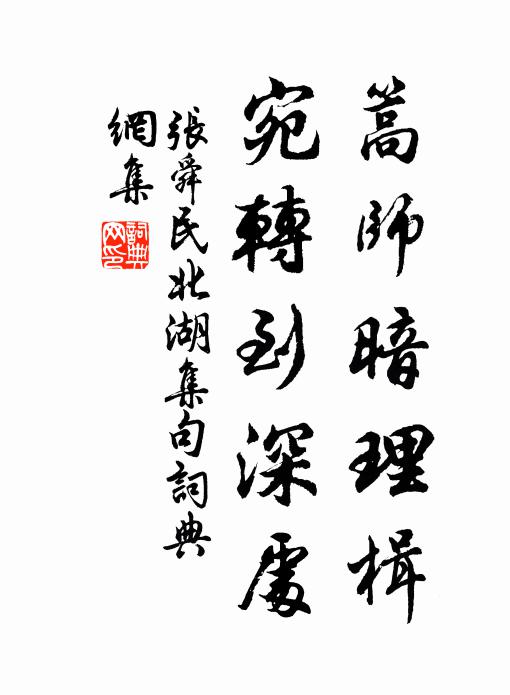 篙師暗理楫
宛轉到深處
張舜民北湖集句詞典
網集
詞典網印